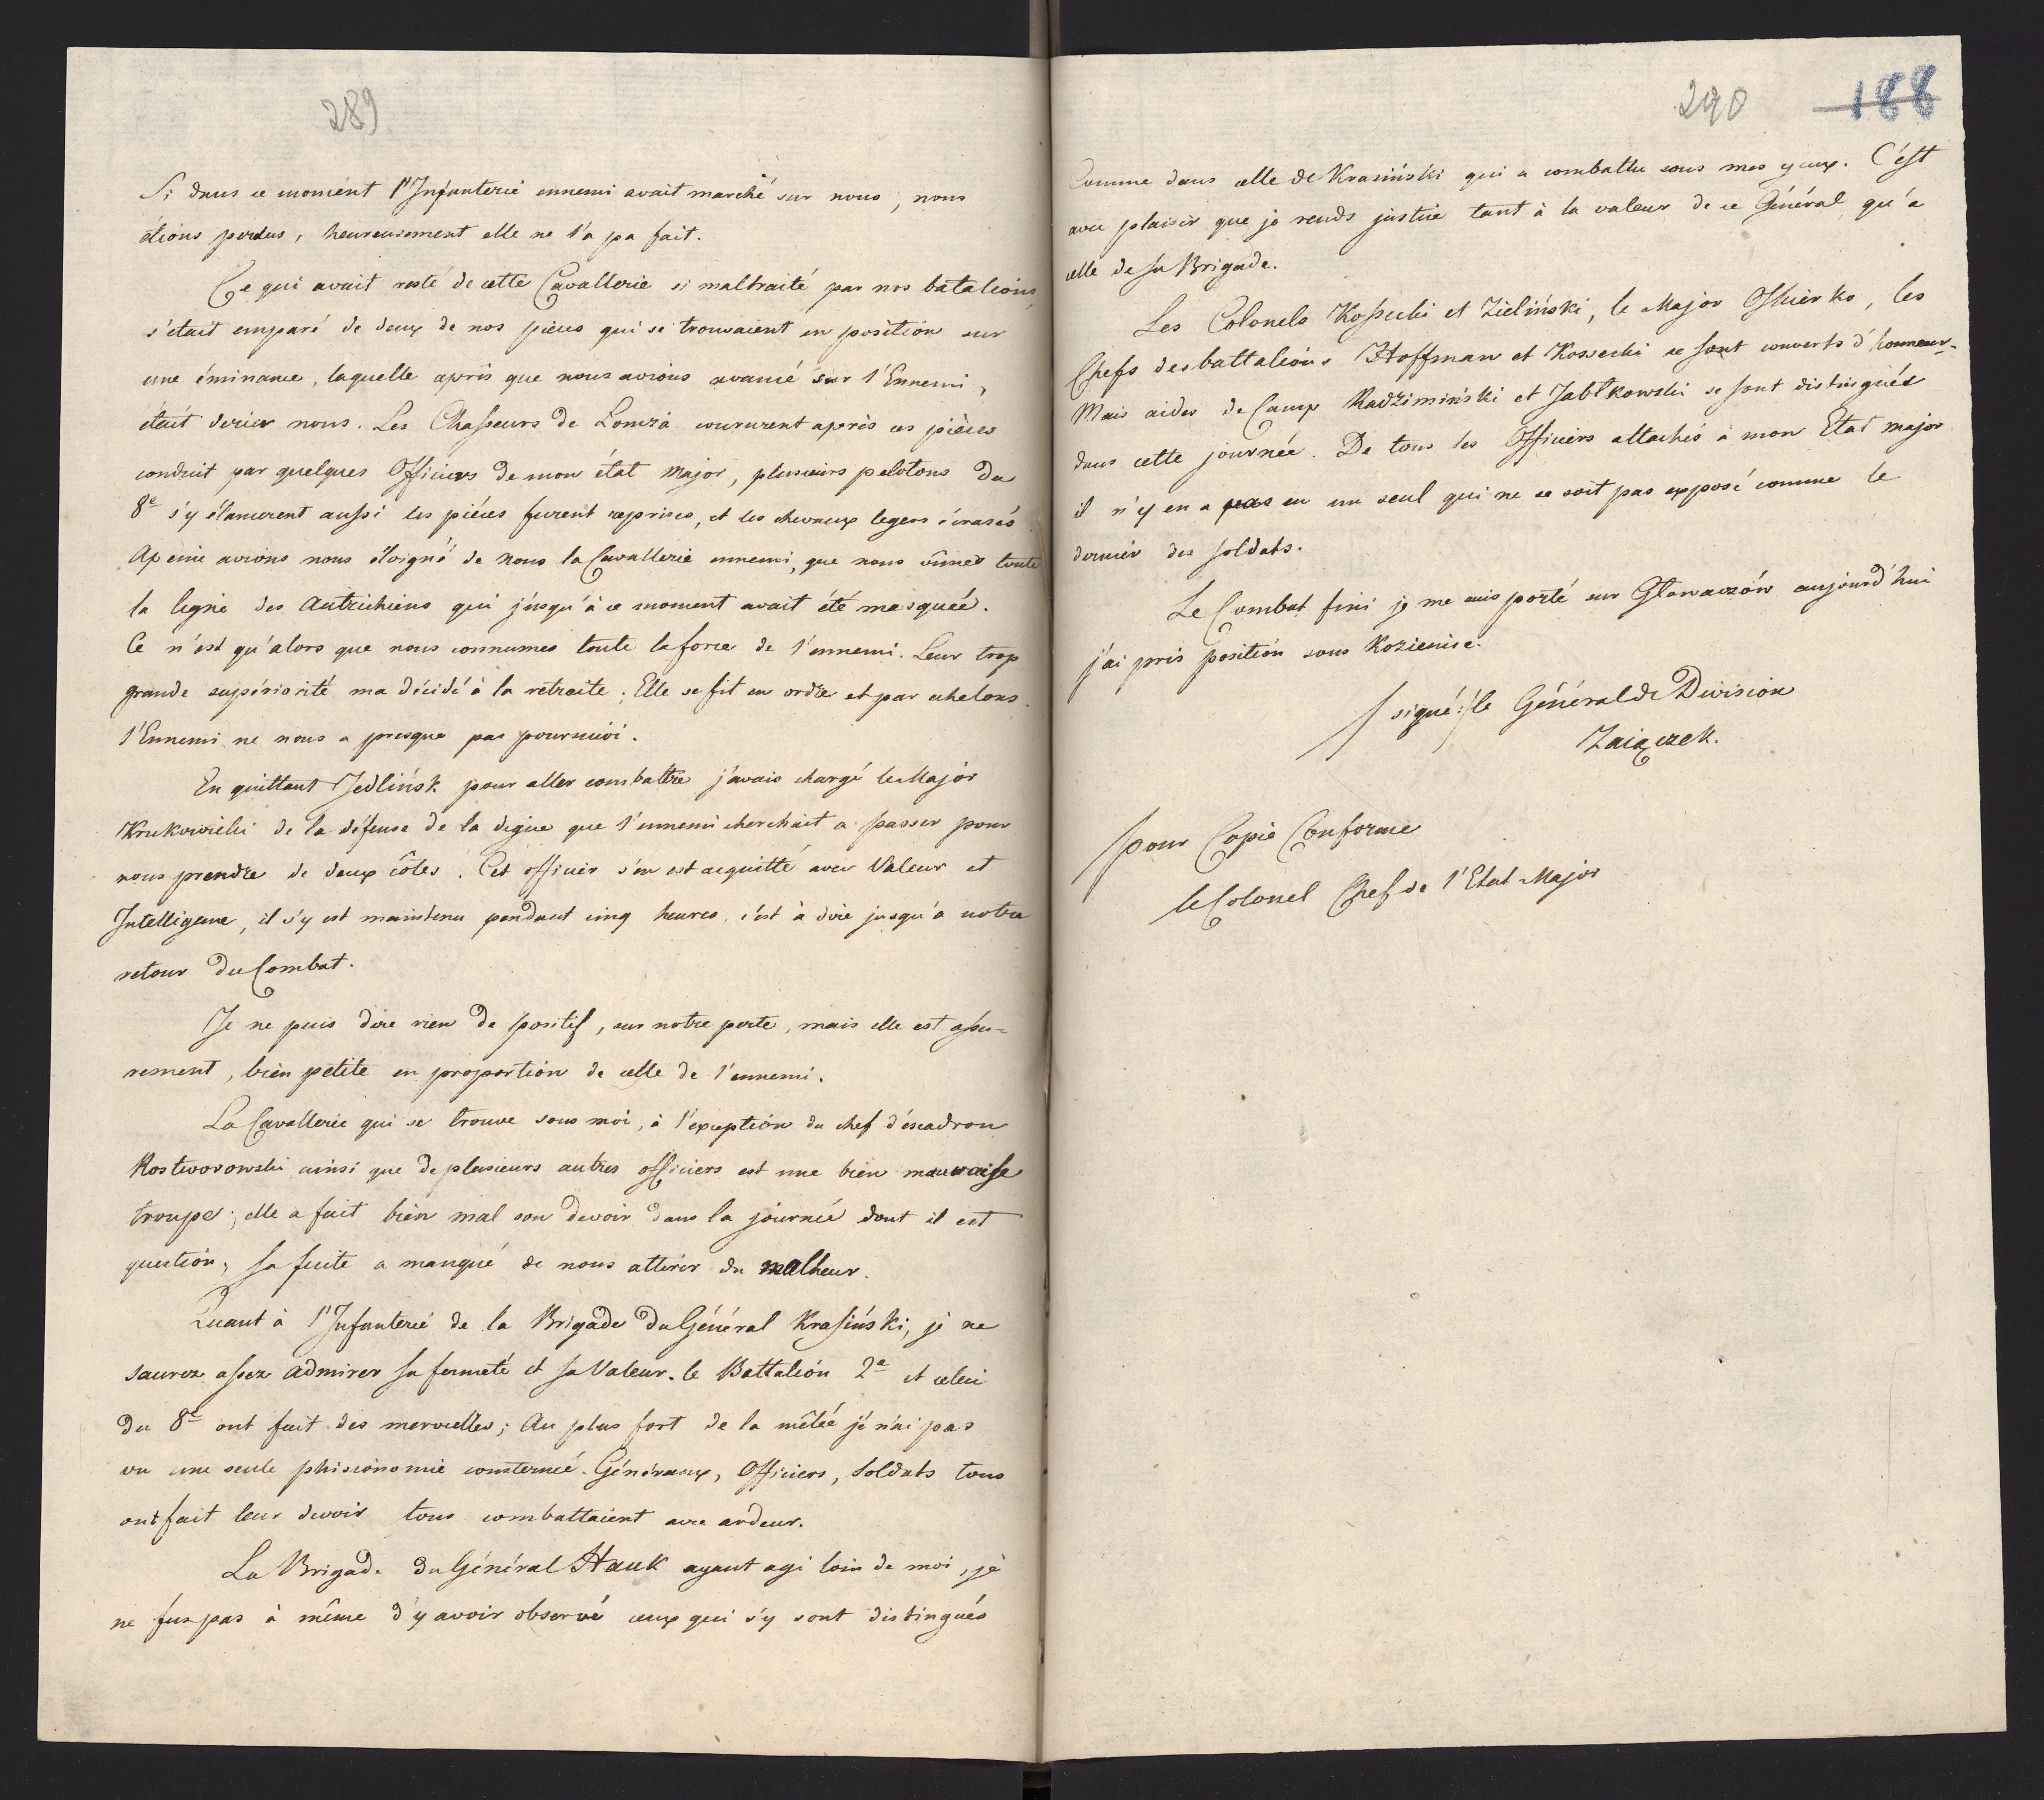 289
Si dans ce moment l'Infanterie ennemi avait marché sur nous, nous
étions perdus, heureusement elle ne l'a pa fait.
Ce qui avait resté de cette Cavallerie si maltraité par nos batalions,
s'était emparé de deux de nos pièces qui se trouvaient en position sur
une éminance, laquelle après que nous avions avancé sur l'Ennemi,
était derier nous. Les Chasseurs de Lomza coururent après ces pièces
conduit par quelques Officiers de mon état major, plusieurs pelotons du
8e s'y élancerent aussi les piéces furent reprises, et les chevaux legers écrasés.
Apeine avions nous éloigné de nous la Cavallerie ennemi, que nous vîmes toute
la ligne des Autrichiens qui jusqu'à ce moment avait été masquée.
Ce n'est qu'alors que nous connumes toute la force de l'ennemi. Leur trop
grande supériorité ma décidé à la retraite; Elle se fit en ordre et par echelons.
l'Ennemi ne nous a presque pas poursuivi.
En quittant Jedlińsk pour aller combattre j'avais chargé le Major
Krukowiecki de la défense de la digue que l'ennemi cherchait a passer pour
nous prendre de deux côtes. Cet officier s'en est acquitté avec Valeur et
Intelligence, il s'y est maintenu pendant cinq heures, c'est à dire jusqu'a notre
retour du Combat.
Je ne puis dire rien de positif, sur notre perte, mais elle est assu=
rement, bien petite en proportion de celle de l'ennemi.
La Cavallerie qui se trouve sous moi, à l'exception du chef d'éscadron
Rostworowski ainsi que de plusieurs autres officiers est une bien mauvaise
troupe; elle a fait bien mal son devoir dans la journée dont il est
question, sa fuite a manqué de nous attirer du malheur.
Quant à l'Infanterie de la Brigade du Général Krasiński, je ne
saurez assez admirer sa fermeté et sa Valeur. le Battalion 2e et celui
du 8e ont fait des merveilles; Au plus fort de la mêlée je n'ai pas
vu une seule phisionomie consternée. Généraux, Officiers, Soldats tous
ont fait leur devoir tous combattaient avec ardeur.
La Brigade du Général Hauk ayant agi loin de moi, je
ne fus pas à même d'y avoir observé ceux qui s'y sont distingués
290 188
Comme dans celle de Krasiński qui a combattu sous mes yeux. C'est
avec plaisir que je rends justice tant à la valeur de ce Général qu'a
celle de sa Brigade.
Les Colonels Kossecki et Zieliński, le Major Oskierko, les
Chefs des battalions Hoffman et Kossecki se sont couverts d'honneur.
Mais aides de Camp Radzimiński et Jabłkowski se sont distingués
dans cette journée. De tous les Officiers attachés à mon Etat major
il n'y en a pas eu un seul qui ne se soit pas exposé comme le
dernier des soldats.
Le Combat fini je me suis porté sur Glowaczów aujourd'hui
j'ai pris position sous Kozienice.
/signé:/ le Général de Division
Zaiączek.
pour Copie Conforme
le Colonel Chef de l'Etat-Major